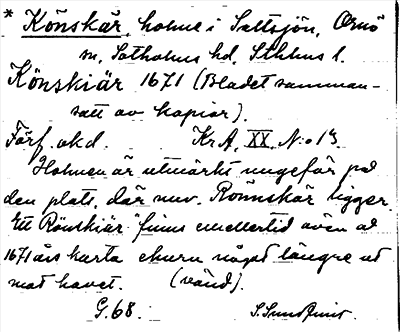 * Könskär, holme i Saltsjön, Ornö
sn, Sotholms hd, Sthlms l.
Könskiär 1671 (Bladet samman-
satt av kopior).
Förf. okd. Kr.A. XX. N:o 13.
Holmen är utmärkt ungefär på
den plats, där nuv. Rönnskär ligger.
Ett "Rönskiär" finns emellertid även å
1671 års karta ehuru något längre ut
mot havet. (vänd).
G. 68. S. Sundqvist